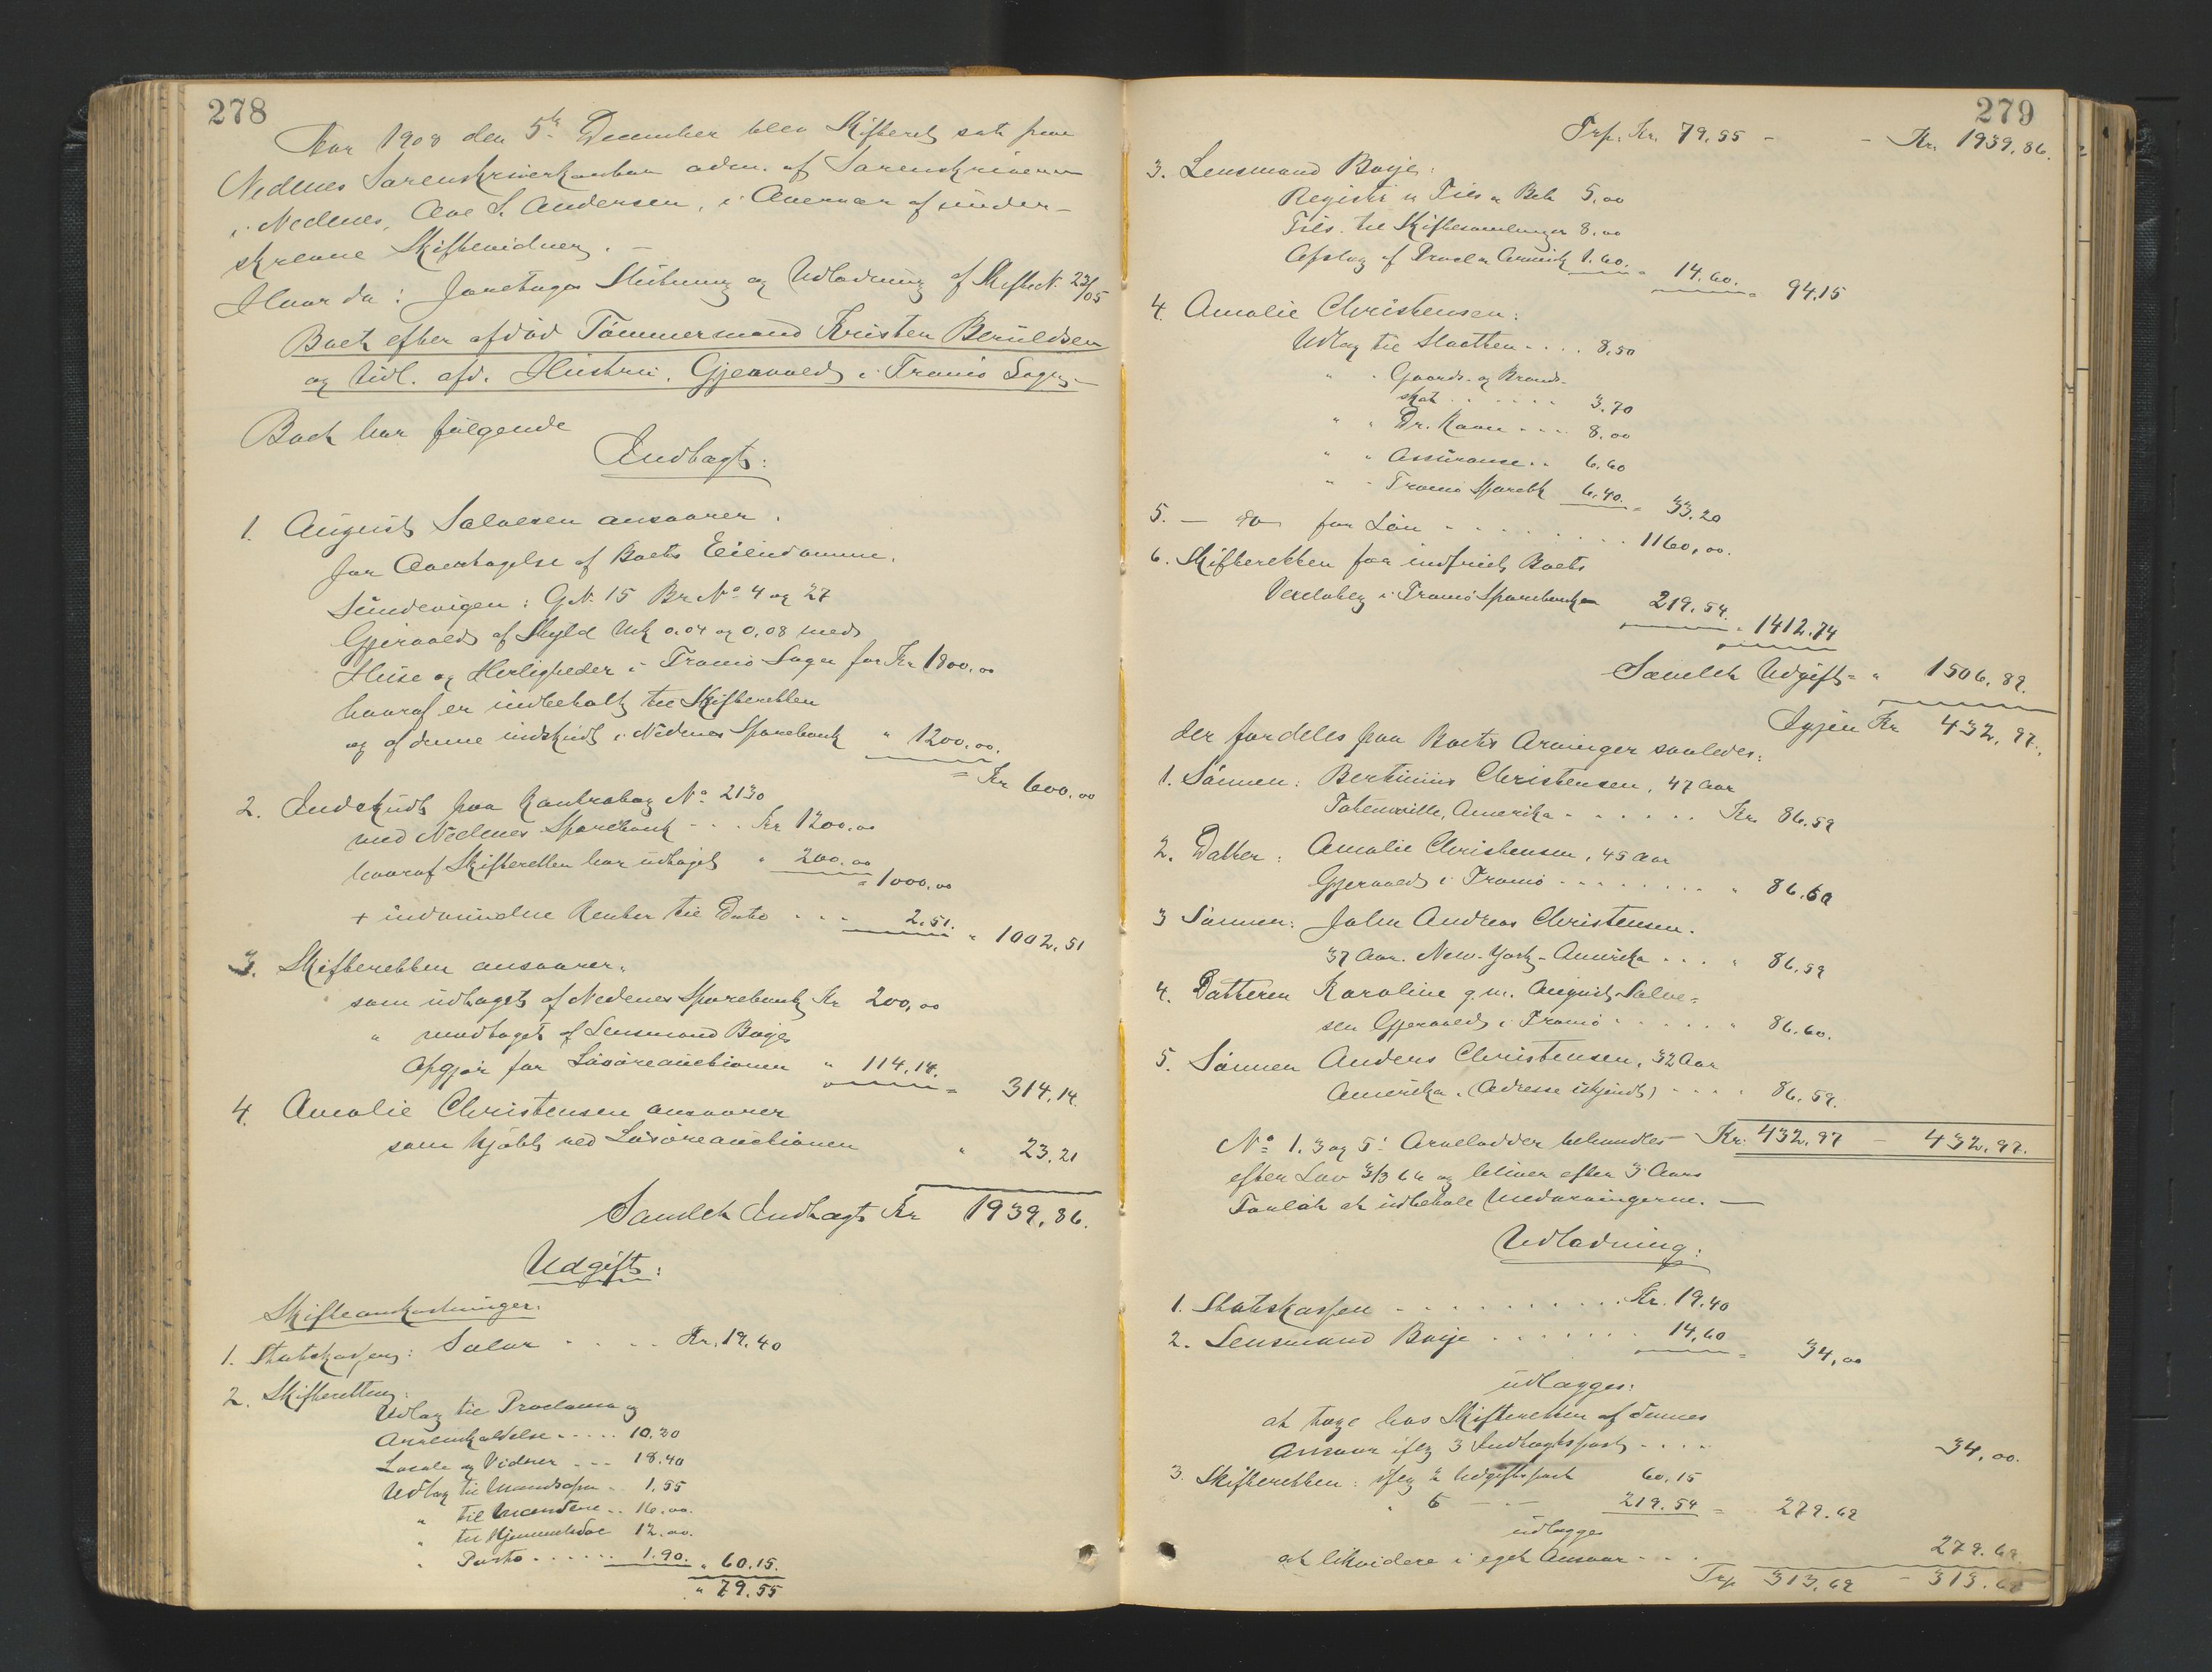 278
Aar 1908 den 5te December blev Skifteret sat paa
Nedenes Sorenskriverkontor adm. af Sorenskriveren
i Nedenes, Ove S. Andersen, i Overvær af under-
skrevne Skiftevidner. —
Hvor da: foretoges Slutning og Udlodning af Skifte N. 23/05
Boet efter afdød Tømmermand Kristen Beruldsen
og tidl. afd. Hustru, Gjervold i Tromø Sogn. —
Boet har følgende
Indtægt:
1. August Salvesen ansvarer.
for Overtagelse af Boets Eiendomme.
Sundevigen: G.N. 15 Br No 4 og 27
Gjervold af Skyld Mk 0.04 og 0.08 med
Huse og Herligheder i Tromø Sogn for Kr 1800.00
hvoraf er indbetalt til Skifteretten
og af denne indskudt i Nedenes Sparebank " 1200.00.
= Kr 600.00
2. Indskudt paa Kontrabog No 2130
med Nedenes Sparebank - - . Kr 1200.00
hvoraf Skifteretten har udtaget " 200.00
= 1000.00
+ indvundne Renter til Dato . . - 2.51. " 1002.51
3. Skifteretten ansvarer.
som udtaget af Nedenes Sparebank Kr 200,00
" modtaget af Lensmand Boije
Opgjør for Løsøreauctionen " 114.14. = 314.14
4. Amalie Christensen ansvarer
som kjøbt ved Løsøreauctionen " 23.21
Samlet Indtægt Kr 1939.86.
Udgift:
Skifteomkostninger.
1. Statskassen: Salar . . . . Kr. 19.40
2. Skifteretten:
Udlæg til Proclama og
Arveindkaldelse . . . . . 10.30
Locale og Vidner . . . 18.40
Udlæg til . 1.55
" til . . 16.00.
" til Hjemmelsdoc 12.00.
" Porto . . . . . . 1.90. " 60.15.
" 79.55
279
Trp. Kr. 79.55 - - Kr. 1939.86.
3. Lensmand Boije:
Registr. & Tils. & Bek 5.00
Tils. til Skiftesamlinger 8.00
Opslag af Procl. 1.60. = 14.60. = 94.15
4. Amalie Christensen:
Udlæg til Skatten . . . . 8.50
" " Gaards- og Brand-
skat . . . . . . 3.70
" " Dr. . . . 8.00
" " Assurance . . 6.60
" " Tromø Sparebk 6.40. = 33.20
5. — do — for Løn . . . . . . . . . 1160,00.
6. Skifteretten for indfriet Boets
Vexelobleg i Tromø Sparebank 219.54. " 1412.74
Samlet Udgift = " 1506.89.
Igjen Kr 432.97.
der fordeles paa Boets Arvinger saaledes:
1. Sønnen: Bertinius Christensen, 47 Aar
Totenville, Amerika . . . . . . . Kr. 86.59
2. Datter: Amalie Christensen, 45 Aar
Gjervold i Tromø . . . . . . . . . " 86.60
3 Sønnen: John Andreas Christensen.
37 Aar. New-York - Amerika . . . . " 86.59
4. Datteren Karoline g.m. August Salve-
sen Gjervold i Tromø . . . . . . " 86.60.
5. Sønnen Anders Christensen, 32 Aar
Amerika. (Adresse ukjendt) . . . . 86.59.
No 1. 3 og 5: Arvelodder behandles — Kr. 432.97 — 432.97.
efter Lov og bliver efter 3 Aars
Forløb at udbetale Medarvingerne. —
Udlodning:
1. Statskassen . . . . . . . . . . . Kr. 19.40
2. Lensmand Boije . . . . . . . 14.60 = 34.00
udlægges:
at tage hos Skifteretten af dennes
Ansvar iflg 3 Indtægtspost . . . . 34.00.
3. Skifteretten: iflg 2 Udgiftspost 60.15
" 6 — - 219.54 = 279.69
udlægges
at likvidere i eget Ansvar - . . 279.69
Trp 313.69 — 313.69